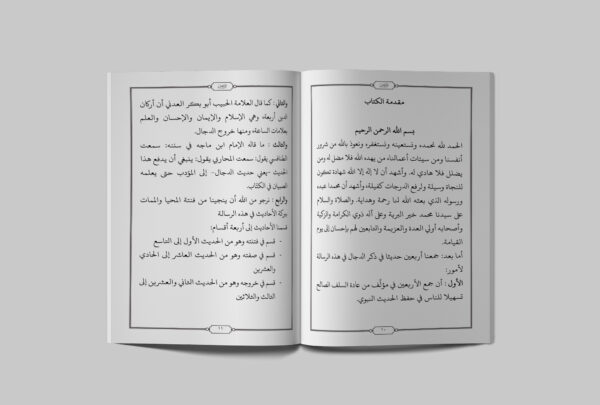 مقدمة الكتاب
بسم الله الرحمن الرحيم
الحمد لله نحمده، ونستعينه ونستغفره ونعوذ بالله من شرور
أنفسنا ومن سيئات أعمالنا، من يهده الله فلا مضل له ومن
يضلل فلا هادي له. وأشهد أن لا إله إلا الله شهادة تكون
للنجاة وسيلة ولرفع الدرجات كفيلة، وأشهد أن محمدا عبده
ورسوله الذي بعثه الله لنا رحمة وهداية. والصلاة والسلام
على سيدنا محمد خير البرية وعلى آله ذوي الكرامة والتزكية
وأصحابه أولي العدة والعزيمة والتابعين لهم بإحسان إلى يوم
القيامة.
أما بعد: جمعنا أربعين حديثا في ذكر الدجال في هذه الرسالة
لأمور:
الأول : أن جمع الأربعين في مؤلَّف من عادة السلف الصالح
تسهيلا للناس في حفظ الحديث النبوي.
١٠
والثاني : كما قال العلامة الحبيب أبو بكر العدني أن أركان
الدين أربعة، وهي الإسلام والإيمان والإحسان والعلم
بعلامات الساعة، ومنها خروج الدجال.
والثالث : ما قاله الإمام ابن ماجه في سننه: سمعت
الطنافسي يقول: سمعت المحاربي يقول: ينبغي أن يدفع هذا
الحديث -يعني حديث الدجال- إلى المؤدب حتى يعلمه
الصبيان في الكتاب.
والرابع : نرجو من الله أن ينجينا من فتنة المحيا والممات
ببركة الأحاديث في هذه الرسالة
قسمنا الأحاديث إلى أربعة أقسام:
- قسم في فتنته وهو من الحديث الأول إلى التاسع
- قسم في صفته وهو من الحديث العاشر إلى الحادي
والعشرين
- قسم في خروجه وهو من الحديث الثاني والعشرين إلى
الثالث والثلاثين
١١